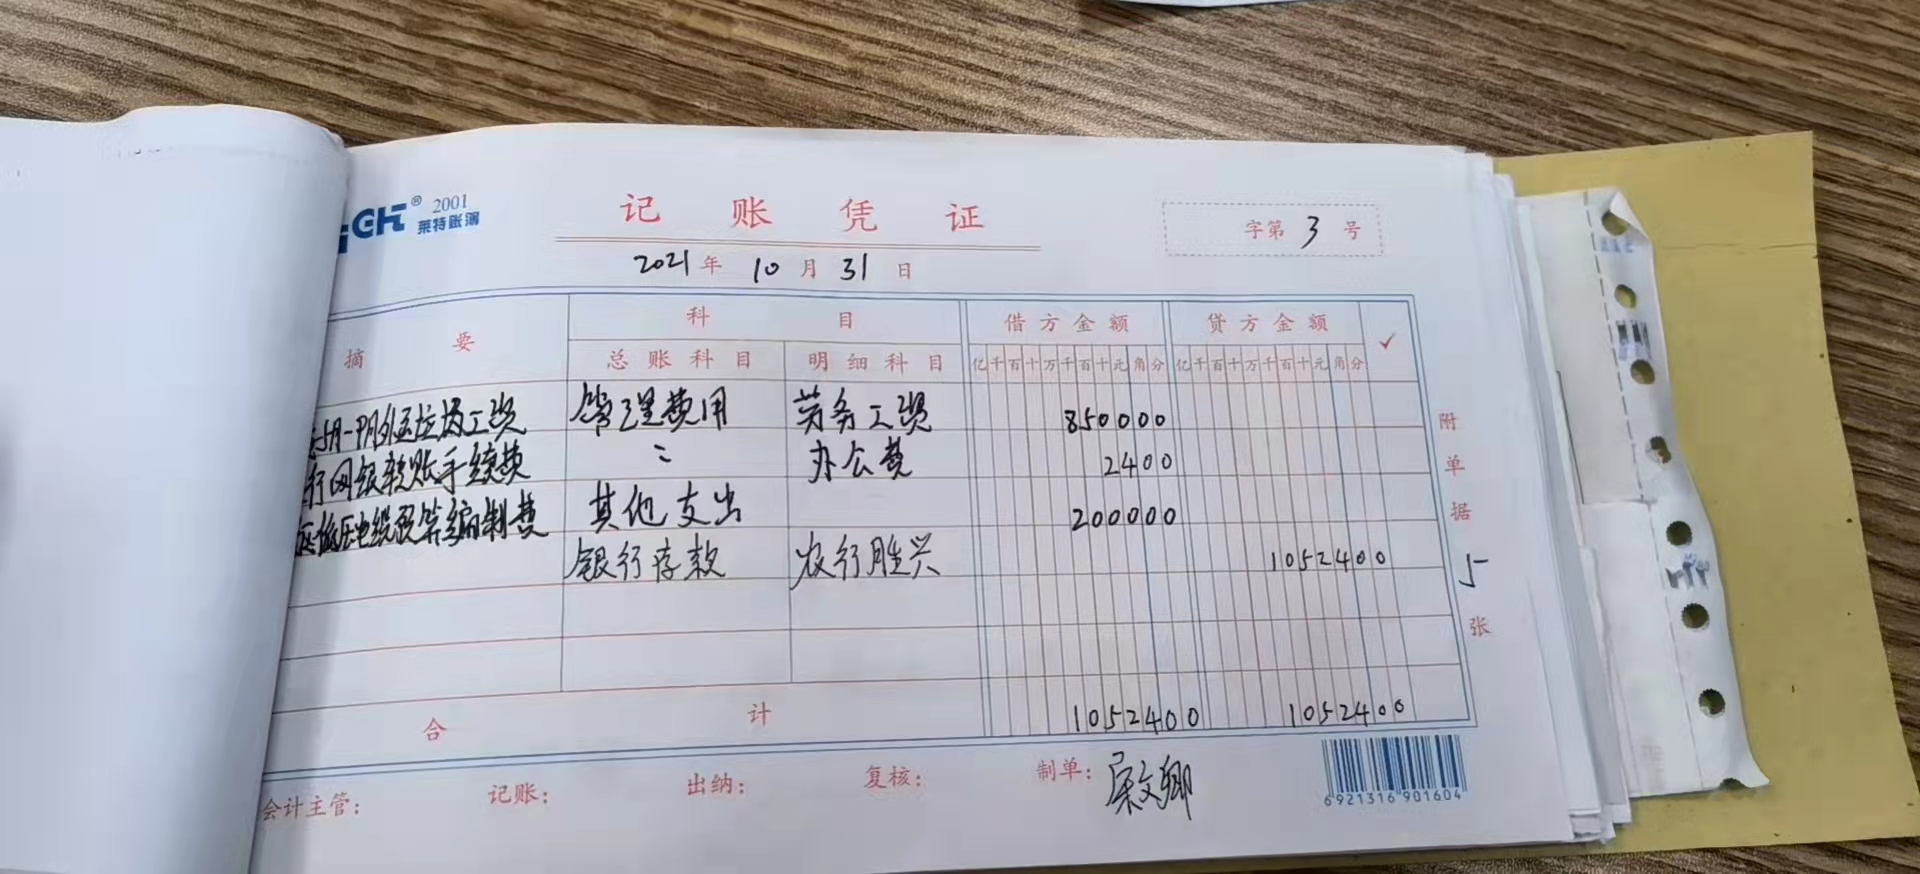 GH® 2001
莱特账簿
记账凭证
字第 3 号
2021 年 10 月 31 日
摘要 科目 借方金额 贷方金额 ✓
总账科目 明细科目 亿千百十万千百十元角分 亿千百十万千百十元角分
5月-9月 工资 管理费用 劳务工资 850000
行网银转账手续费 〃 办公费 2400
低压电缆预算编制费 其他支出 200000
银行存款 农行胜兴 1052400
合计 1052400 1052400
附单据 5 张
会计主管: 记账: 出纳: 复核: 制单: 文卿
6921316901604